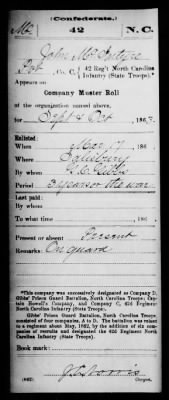 (Confederate.)
Mc 42 N.C.
John McIntyre
Pvt, Co. C, 42 Reg't North Carolina
Infantry (State Troops).*
Appears on
Company Muster Roll
of the organization named above,
for Sept & Oct, 1863.
Enlisted:
When Mar 17, 186
Where Salisbury
By whom G. C. Gibbs
Period 3 years or the war
Last paid:
By whom
To what time , 186
Present or absent Present
Remarks: On guard
*This company was successively designated as Company D,
Gibbs' Prison Guard Battalion, North Carolina Troops; Captain
Howell's Company, and Company C, 42d Regiment
North Carolina Infantry (State Troops).
Gibbs' Prison Guard Battalion, North Carolina Troops,
consisted of four companies, A to D. The battalion was raised
to a regiment about May, 1862, by the addition of six companies
of recruits and designated the 42d Regiment North Carolina
Infantry (State Troops).
Book mark:
(642) Copyist.